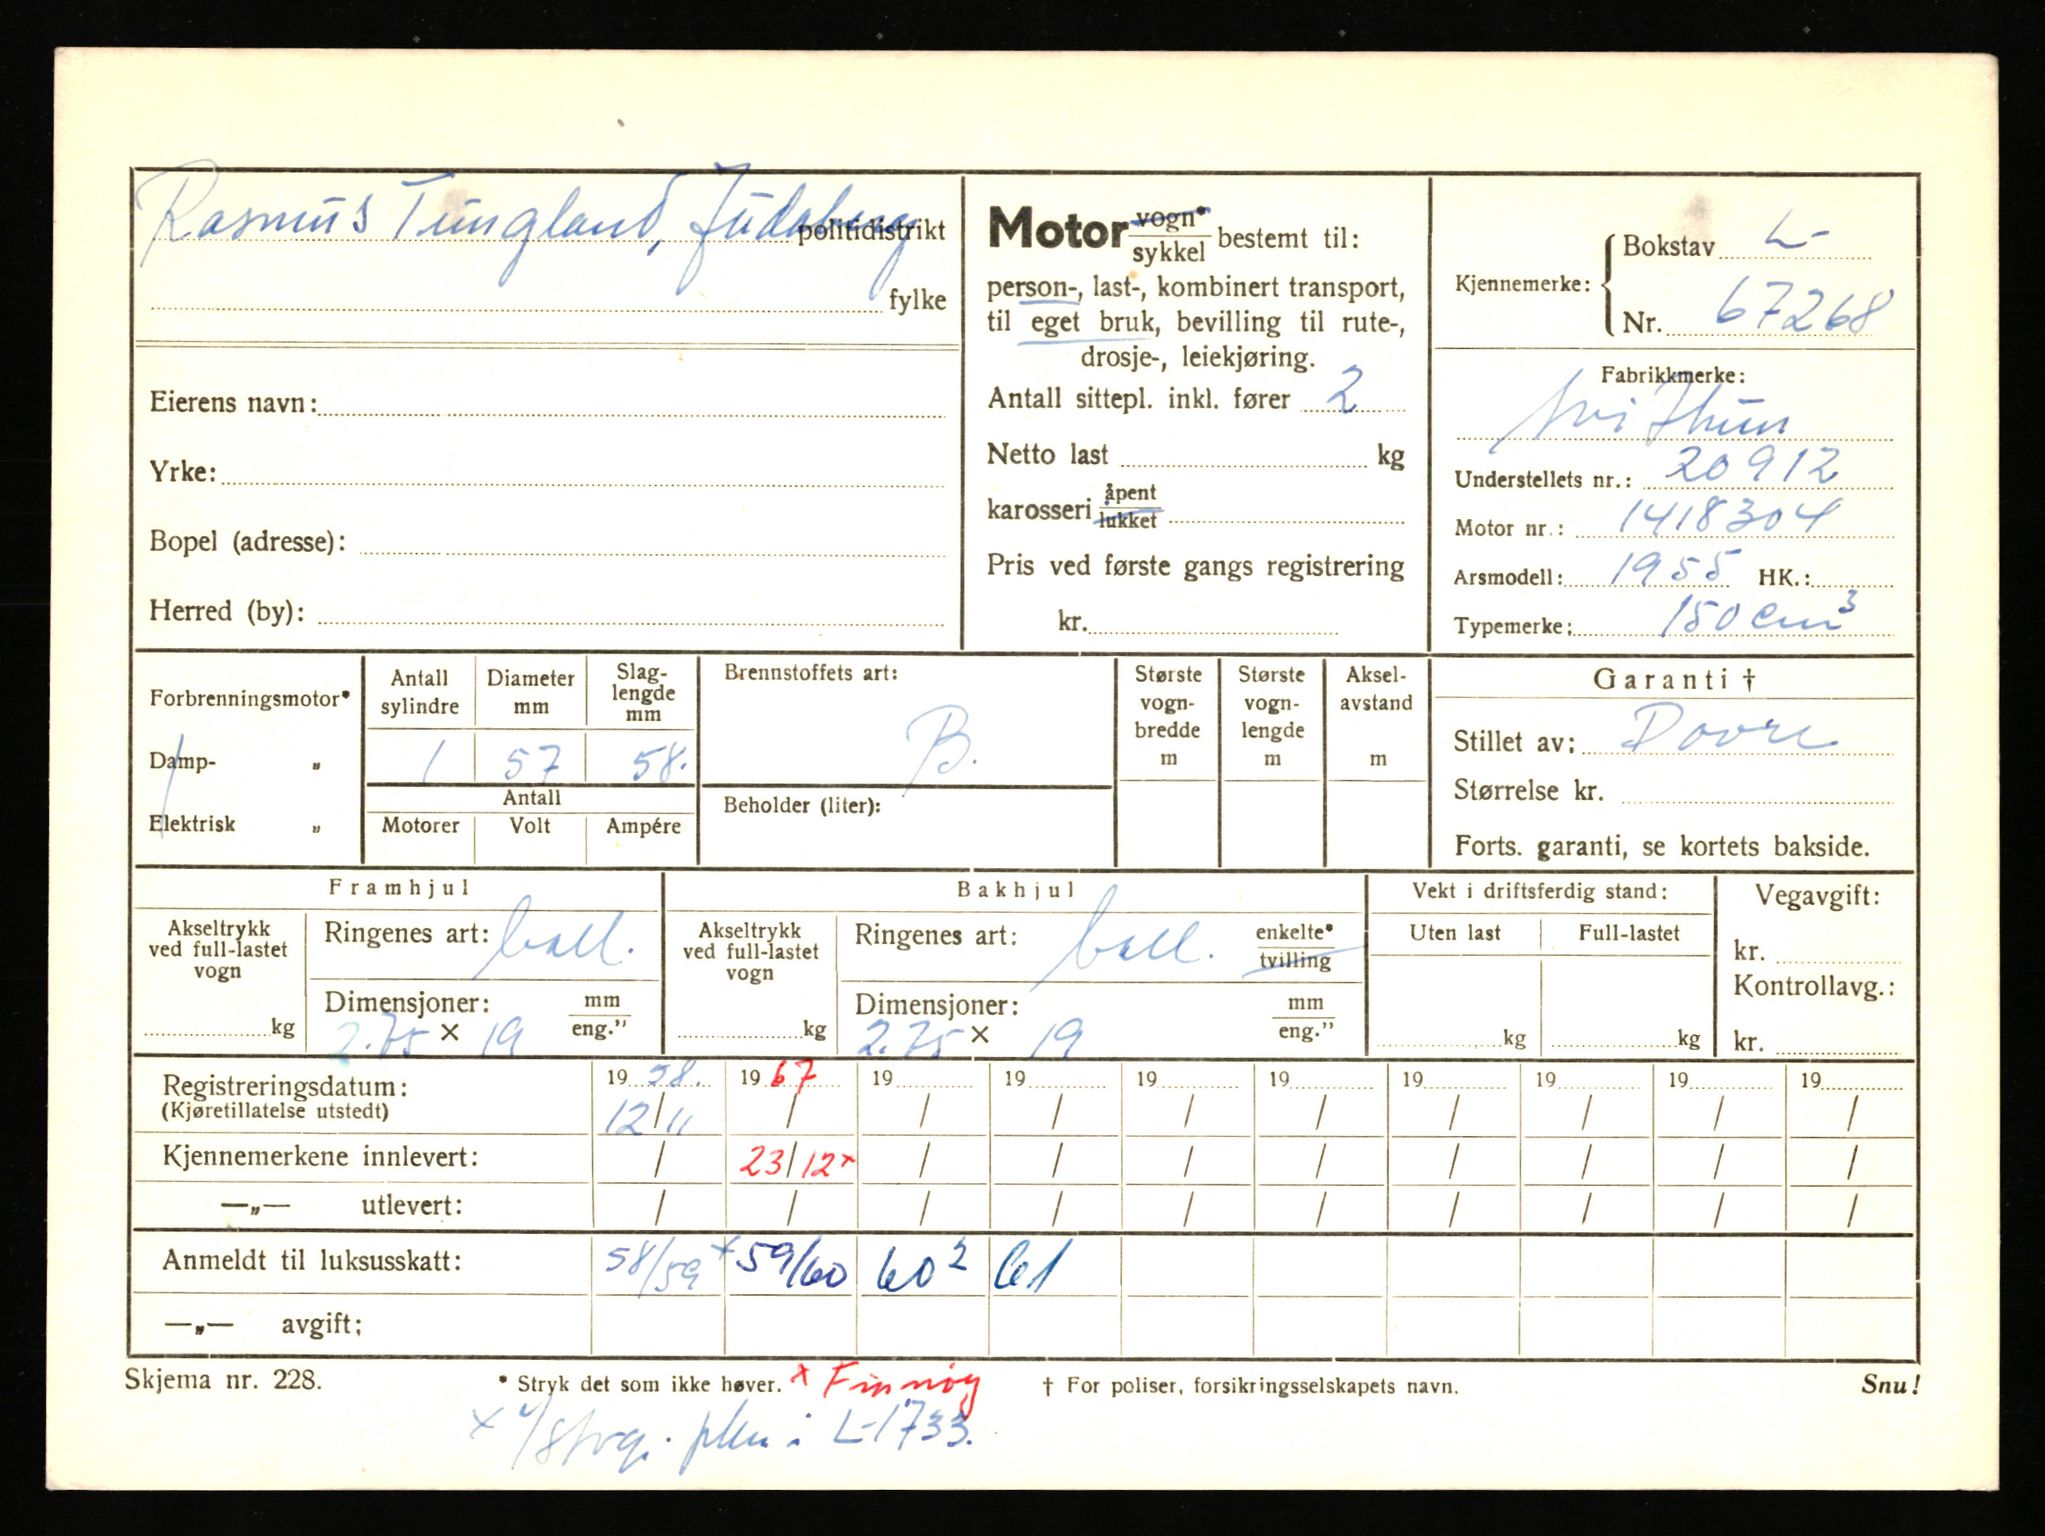 Rasmus Tungland, Judaberg politidistrikt
fylke
Eierens navn:
Yrke:
Bopel (adresse):
Herred (by):
Motor vogn* / sykkel bestemt til:
person-, last-, kombinert transport,
til eget bruk, bevilling til rute-,
drosje-, leiekjøring.
Antall sittepl. inkl. fører 2
Netto last kg
karosseri åpent / lukket
Pris ved første gangs registrering
kr.
Kjennemerke: Bokstav L-
Nr. 67268
Fabrikkmerke:
Svithun
Understellets nr.: 20912
Motor nr.: 1418304
Arsmodell: 1955 HK.:
Typemerke: 150 cm³
Forbrenningsmotor*
Damp- „
Elektrisk „
Antall sylindre
1
Diameter mm
57
Slag-lengde mm
58.
Antall
Motorer Volt Ampére
Brennstoffets art:
B.
Beholder (liter):
Største vogn-bredde m
Største vogn-lengde m
Aksel-avstand m
Garanti †
Stillet av: Dovre
Størrelse kr.
Forts. garanti, se kortets bakside.
Framhjul
Akseltrykk ved full-lastet vogn
kg
Ringenes art: ball.
Dimensjoner: mm / eng."
2.75 × 19
Bakhjul
Akseltrykk ved full-lastet vogn
kg
Ringenes art: ball. enkelte* / tvilling
Dimensjoner: mm / eng."
2.75 × 19
Vekt i driftsferdig stand:
Uten last Full-lastet
kg kg
Vegavgift:
kr.
Kontrollavg.:
kr.
Registreringsdatum: 19 58. 19 67 19 19 19 19 19 19 19 19
(Kjøretillatelse utstedt) 12/11 / / / / / / / / /
Kjennemerkene innlevert: / 23/12 x / / / / / / / /
—„— utlevert: / / / / / / / / / /
Anmeldt til luksusskatt: 58/59 x 59/60 60² 61
—„— avgift;
Skjema nr. 228. * Stryk det som ikke høver. x Finnøy † For poliser, forsikringsselskapets navn. Snu!
x i L-1733.